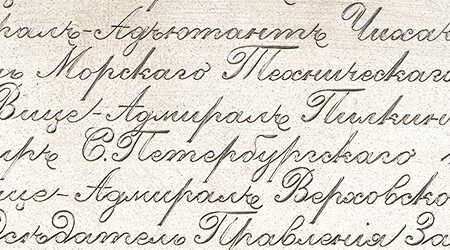 ралъ-Адъютантъ Чихач
ль Морскаго Техническаго
Вице-Адмиралъ Пилкин
иръ С. Петербургскаго
ице-Адмиралъ Верховско
дсѣдатель Правленія За